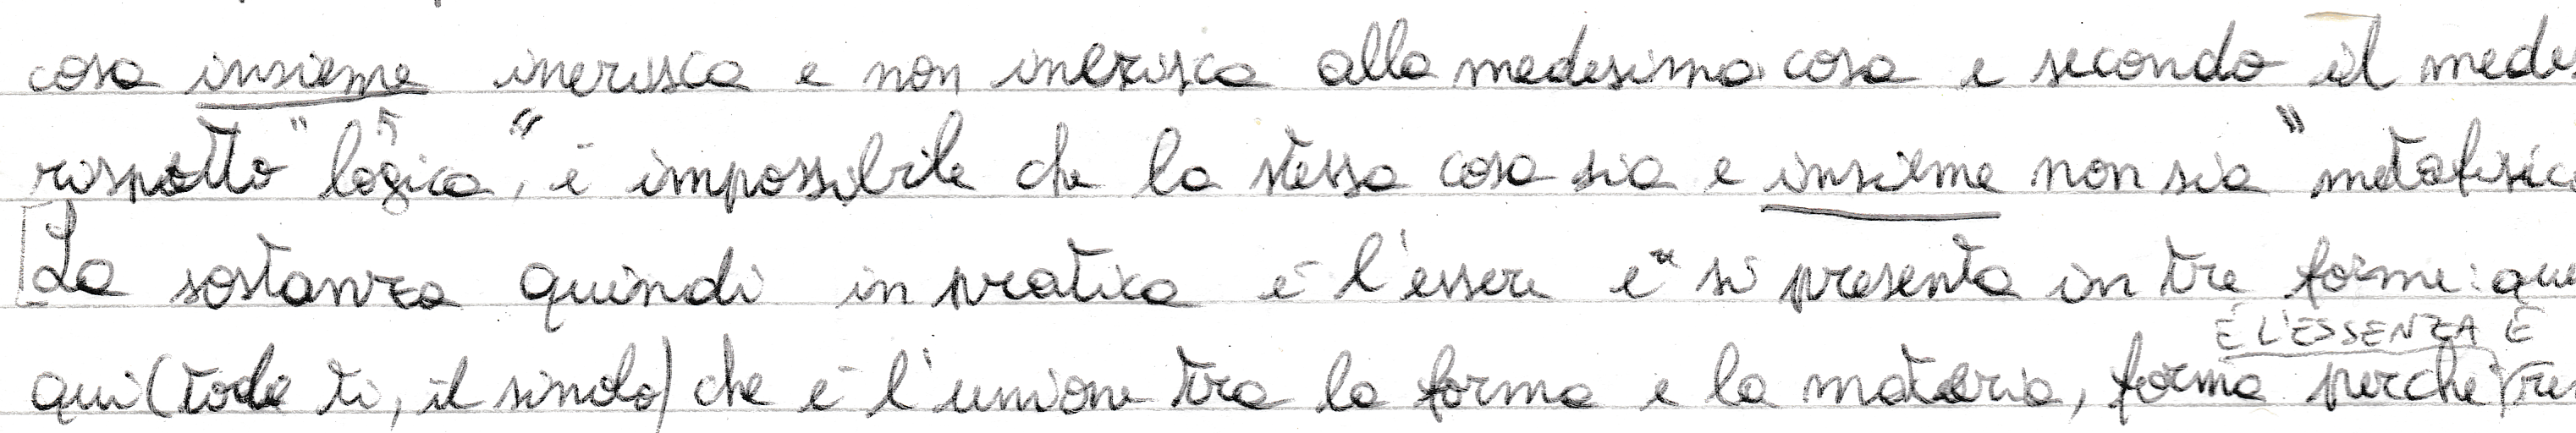 cosa insieme inerisca e non inerisca alla medesima cosa e secondo il mede
rispetto "logica", è impossibile che la stessa cosa sia e insieme non sia" metafisic
[La sostanza quindi in pratica è l'essere e si presenta in tre forme: que
È L'ESSENZA E
qui (tode ti, il sinolo) che è l'unione tra la forma e la materia, forma perché